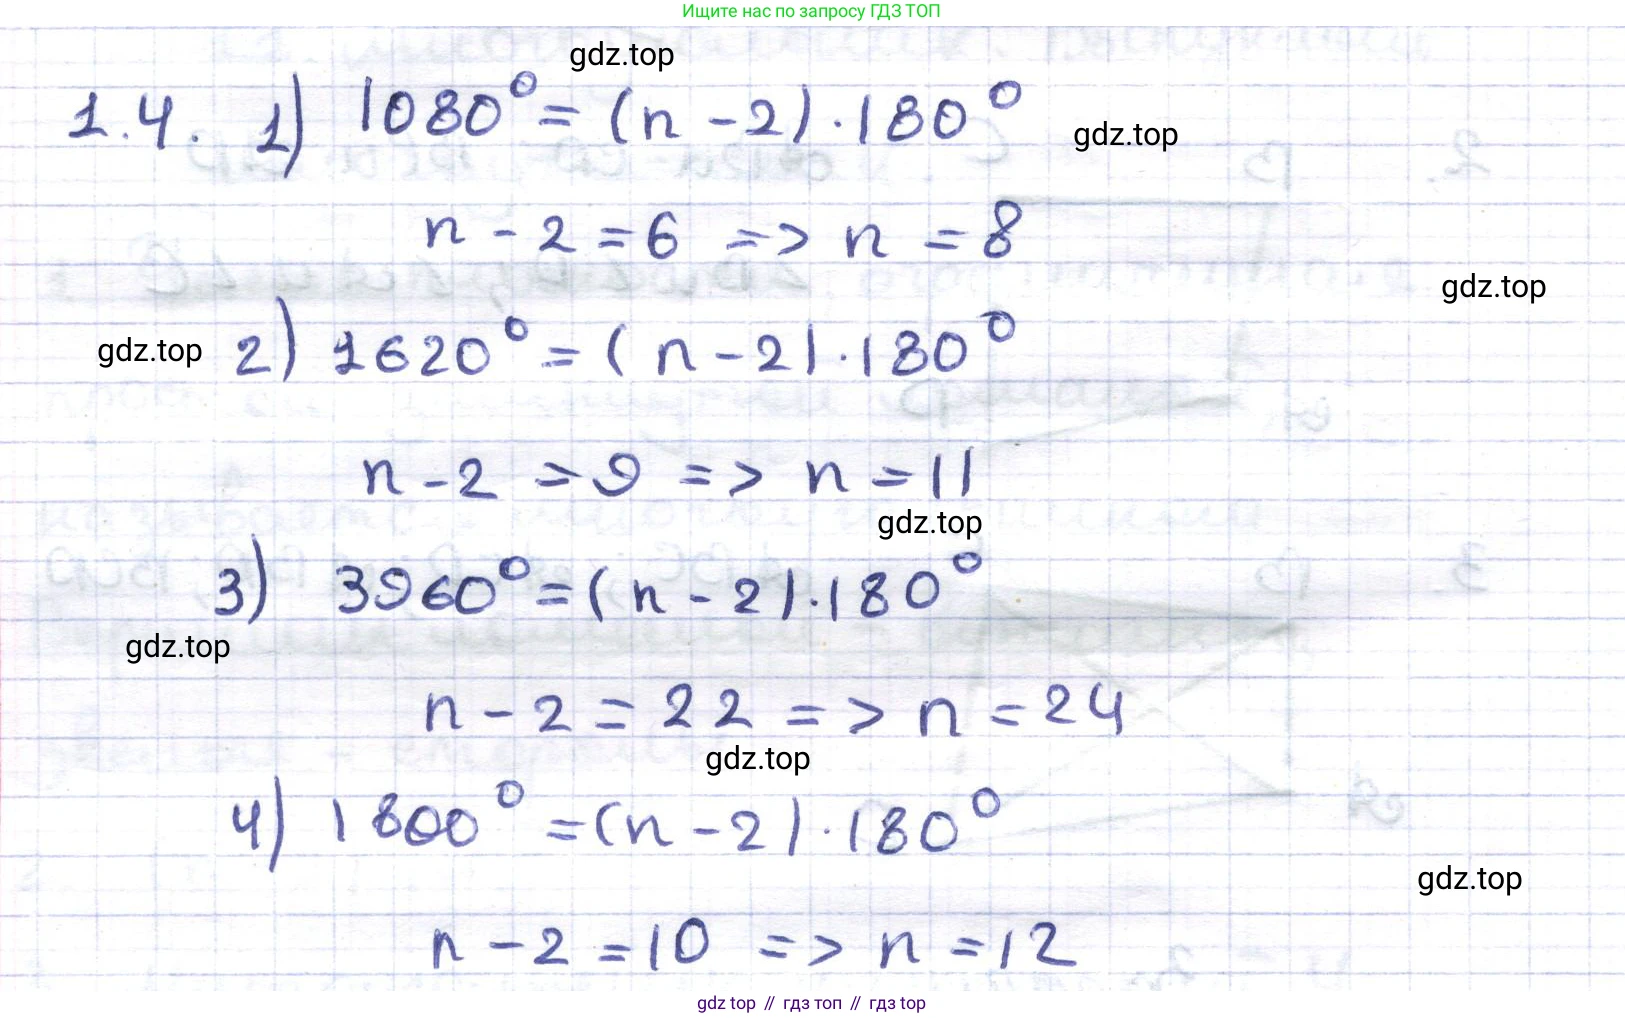 Ищите нас по запросу ГДЗ ТОП
gdz.top
1.4. 1) 1080° = (n - 2) · 180°
gdz.top
n - 2 = 6 => n = 8
gdz.top
gdz.top
2) 1620° = (n - 2) · 180°
n - 2 = 9 => n = 11
gdz.top
3) 3960° = (n - 2) · 180°
gdz.top
n - 2 = 22 => n = 24
gdz.top
4) 1800° = (n - 2) · 180°
gdz.top
n - 2 = 10 => n = 12
gdz top // гдз топ // гдз top